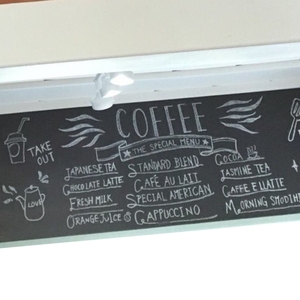 COFFEE
THE SPECIAL MENU
TAKE
OUT
LOVE
JAPANESE TEA
CHOCOLATE LATTE
FRESH MILK
ORANGE JUICE
STANDARD BLEND
CAFÉ AU LAIT
SPECIAL AMERICAN
CAPPUCCINO
COCOA
JASMINE TEA
CAFFE E LATTE
MORNING SMOOTHI